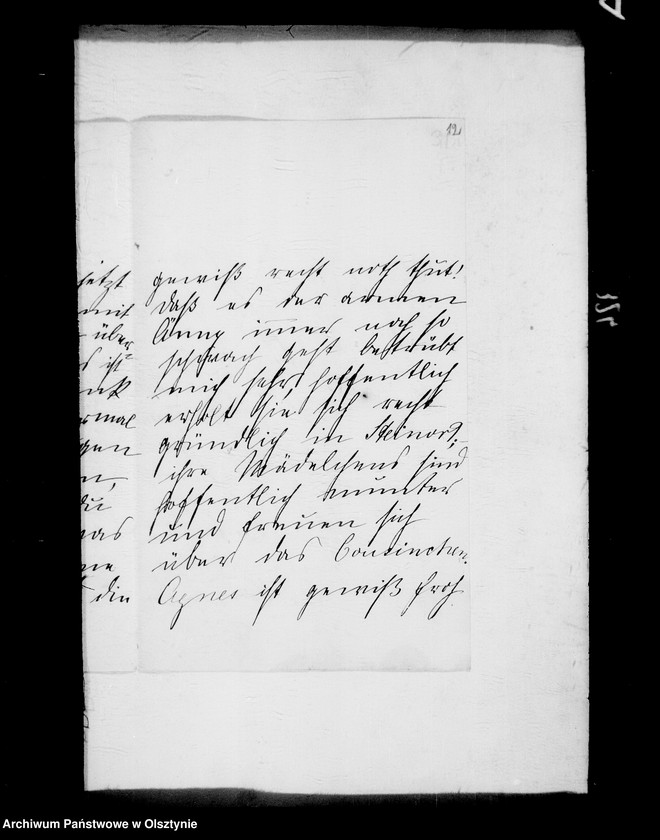 12
gewiß recht noth thut!
Daß es der armen
Änny immer noch so
schwach geht betrübt
mich sehr, hoffentlich
erholt sie sich recht
gründlich in Steinort,
ihre Mädelchens sind
hoffentlich munter
und freuen sich
über das Cousinchen.
Agnes ist gewiß froh
jetzt
mit
über
ist
rmal
gen
du
was
die
324
Archiwum Państwowe w Olsztynie